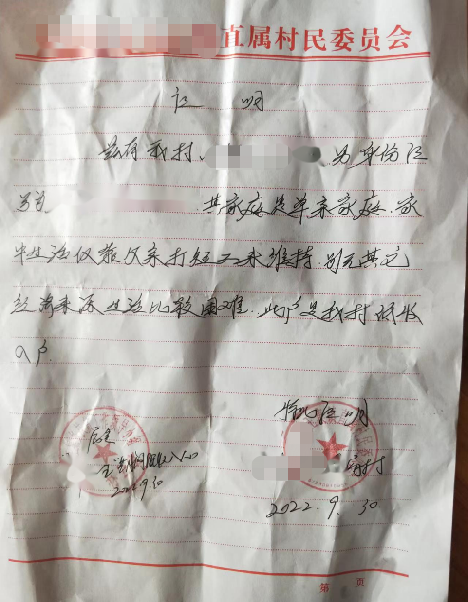 直属村民委员会
证 明
兹有我村 为身份证
号为 其家庭是单亲家庭.家
里生活仅靠父亲打短工来维持.别无其它
经济来源生活比较困难.此户是我村低收
入户
特此证明
属实
2022.9.30
2022.9.30
第 页